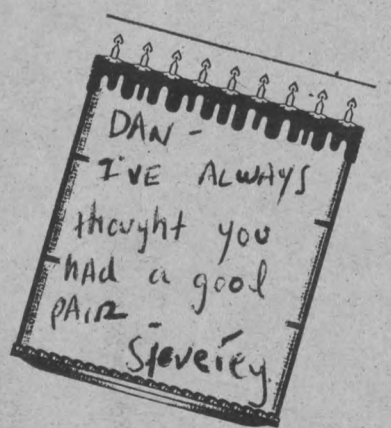 DAN -
I'VE ALWAYS
thought you
had a good
PAIR
Steverey